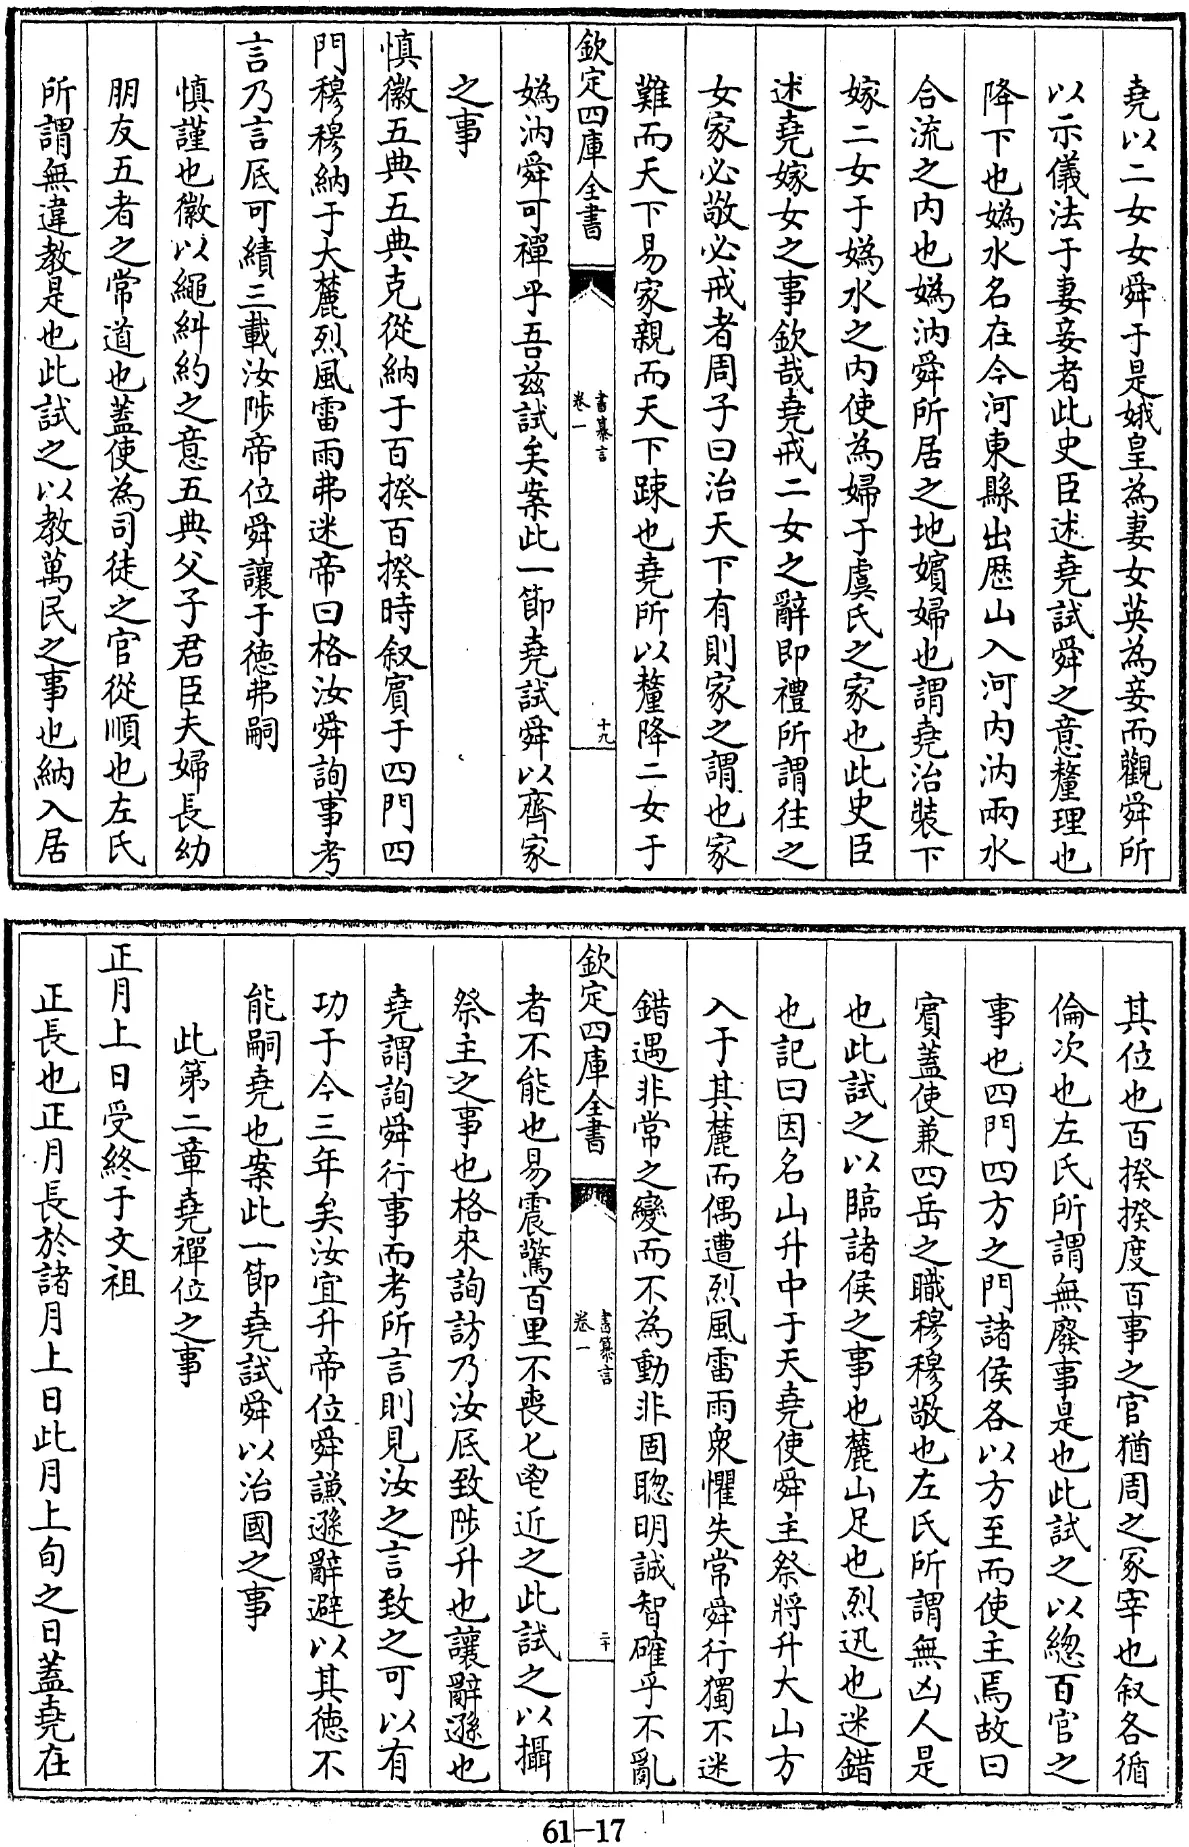 堯以二女女舜于是娥皇為妻女英為妾而觀舜所
以示儀法于妻妾者此史臣述堯試舜之意釐理也
降下也嬀水名在今河東縣出歴山入河内汭兩水
合流之内也嬀汭舜所居之地嬪婦也謂堯治裝下
嫁二女于嬀水之内使為婦于虞氏之家也此史臣
述堯嫁女之事欽哉堯戒二女之辭即禮所謂往之
女家必敬必戒者周子曰治天下有則家之謂也家
難而天下易家親而天下踈也堯所以釐降二女于
欽定四庫全書
書纂言
卷一
十九
嬀汭舜可禪乎吾兹試矣案此一節堯試舜以齊家
之事
慎徽五典五典克從納于百揆百揆時叙賓于四門四
門穆穆納于大麓烈風雷雨弗迷帝曰格汝舜詢事考
言乃言厎可績三載汝陟帝位舜讓于德弗嗣
慎謹也徽以繩糾約之意五典父子君臣夫婦長幼
朋友五者之常道也蓋使為司徒之官從順也左氏
所謂無違教是也此試之以教萬民之事也納入居
其位也百揆揆度百事之官猶周之冢宰也叙各循
倫次也左氏所謂無廢事是也此試之以總百官之
事也四門四方之門諸侯各以方至而使主焉故曰
賓蓋使兼四岳之職穆穆敬也左氏所謂無凶人是
也此試之以臨諸侯之事也麓山足也烈迅也迷錯
也記曰因名山升中于天堯使舜主祭將升大山方
入于其麓而偶遭烈風雷雨衆懼失常舜行獨不迷
錯遇非常之變而不為動非固聰明誠智確乎不亂
欽定四庫全書
書纂言
卷一
二十
者不能也易震驚百里不喪匕鬯近之此試之以攝
祭主之事也格來詢訪乃汝厎致陟升也讓辭遜也
堯謂詢舜行事而考所言則見汝之言致之可以有
功于今三年矣汝宜升帝位舜謙遜辭避以其德不
能嗣堯也案此一節堯試舜以治國之事
此第二章堯禪位之事
正月上日受終于文祖
正長也正月長於諸月上日此月上旬之日蓋堯在
61-17